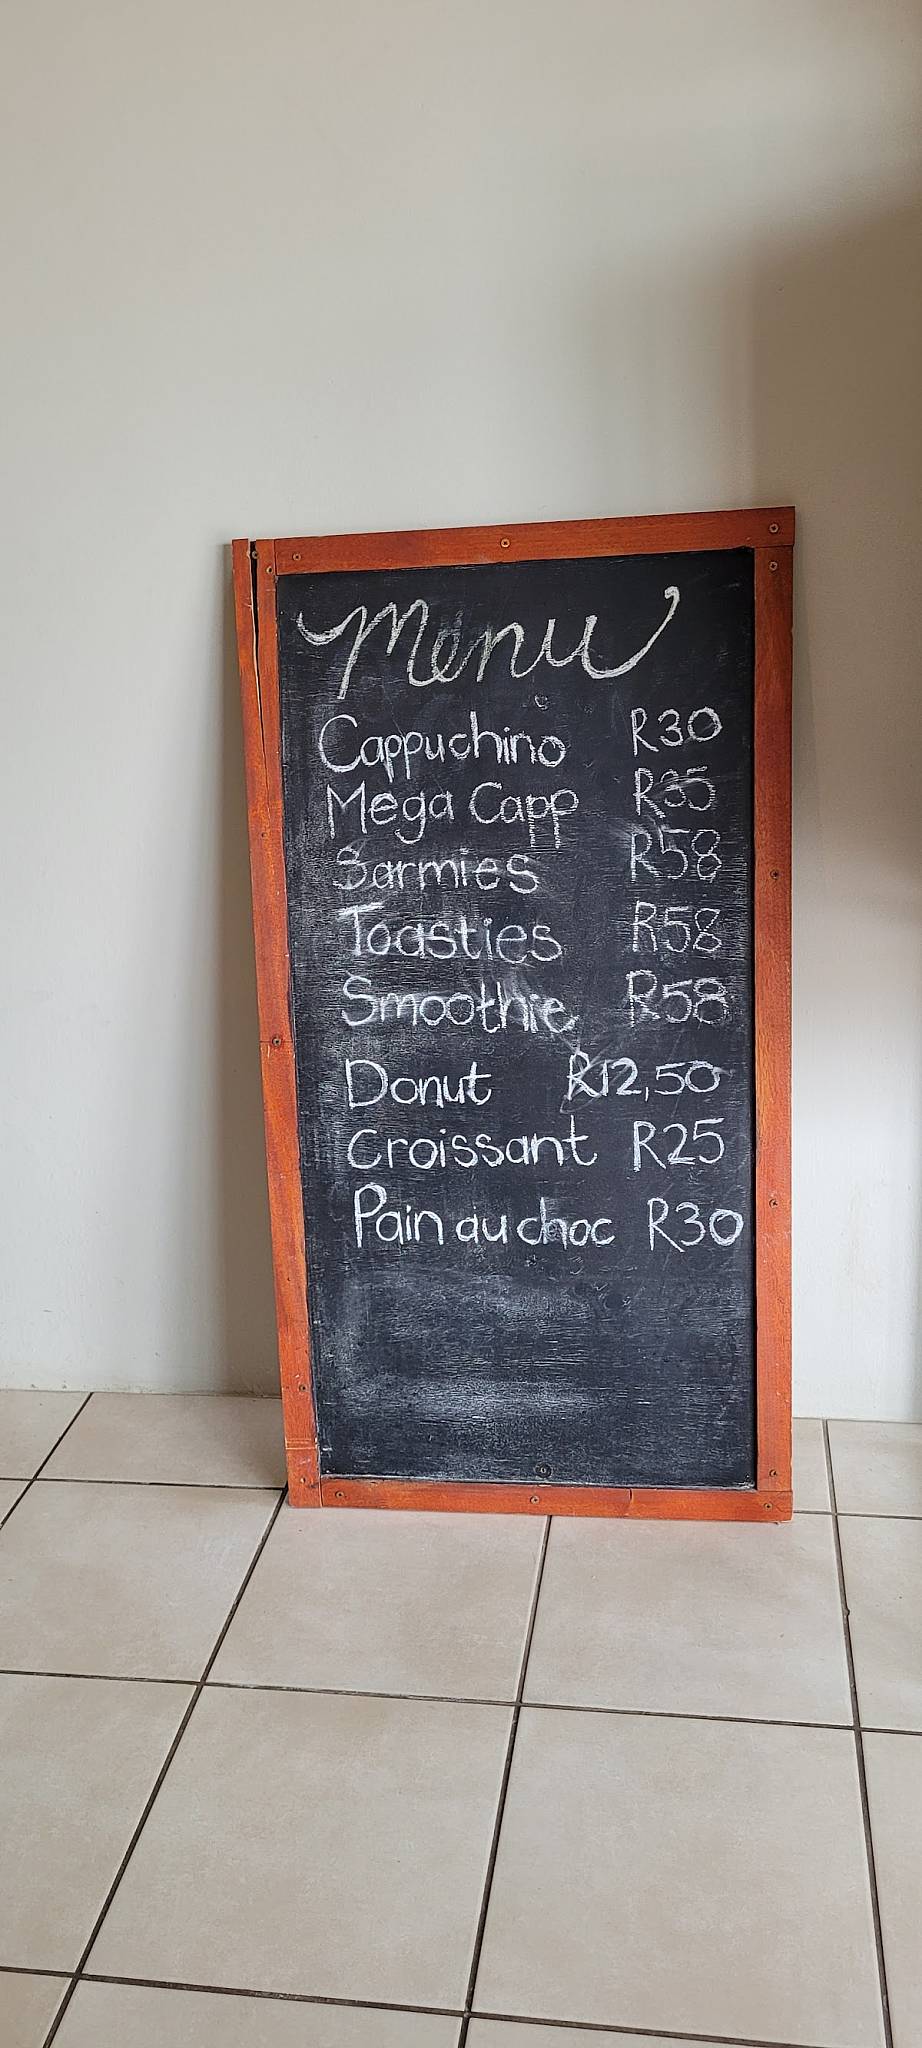 Menu
Cappuchino R30
Mega Capp R35
Sarmies R58
Toasties R58
Smoothie R58
Donut R12,50
Croissant R25
Pain au choc R30